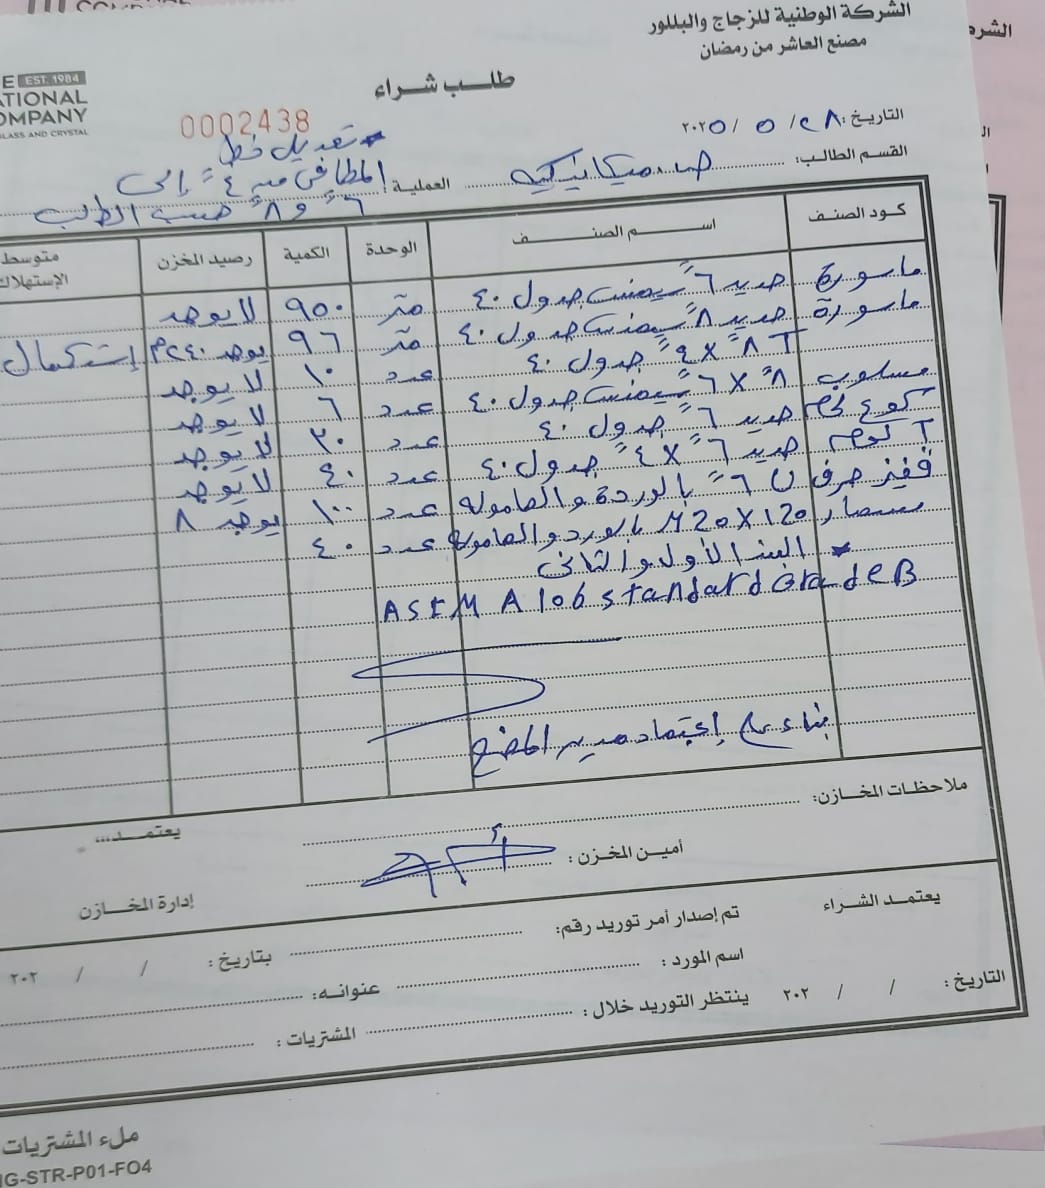 الشركة الوطنية للزجاج والبللور
مصنع العاشر من رمضان
الشر
EST. 1984
ATIONAL
OMPANY
GLASS AND CRYSTAL
طلب شراء
0002438
التاريخ: ٢٨ / ٥ / ٢٠٢٥
القسم الطالب: ص. ميكانيكيه
العملية: * تعديل خط
المطافى من ٤" إلى
٦" و ٨" حسب الطلب
كود الصنف اسم الصنف الوحدة الكمية رصيد المخزن متوسط الإستهلاك
ماسورة حديد ٦" سيملس جدول ٤٠ متر ٩٥٠ لا يوجد
ماسورة حديد ٨" سيملس جدول ٤٠ متر ٩٦ يوجد ٢٤٠م إستكمال
T ٨" X ٤" جدول ٤٠ عدد ١٠ لا يوجد
مسلوب ٨" X ٦" سيملس جدول ٤٠ عدد ٦ لا يوجد
كوع لحام حديد ٦" جدول ٤٠ عدد ٣٠ لا يوجد
T لحام حديد ٦" X ٤" جدول ٤٠ عدد ٤٠ لا يوجد
قفيز حرف U ٦" بالوردة والصامولة عدد ١٠٠ يوجد ٨
مسمار M20 X 120 بالورد والصامولة عدد ٤٠
* البند الأول والثانى
ASTM A 106 standard Grade B
بناء على إعتماد مدير المصنع
ملاحظات المخازن:
يعتمد...
أمين المخزن:
إدارة المخازن
يعتمد الشراء
تم إصدار أمر توريد رقم: بتاريخ: / / ٢٠٢
اسم المورد: عنوانه:
التاريخ: / / ٢٠٢ ينتظر التوريد خلال: المشتريات:
ملء المشتريات
IG-STR-P01-FO4